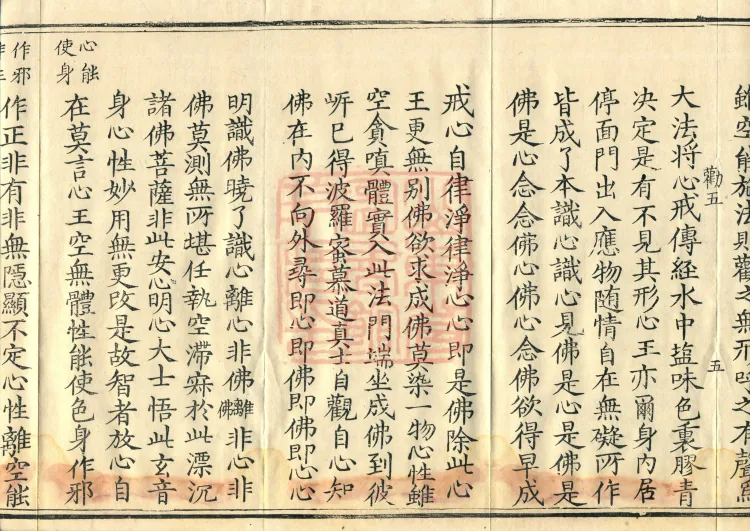 雖空能施法則觀之無形呼之有聲
勸五
五
大法將心戒傳經水中塩味色裏膠青
决定是有不見其形心王亦爾身內居
停面門出入應物随情自在無礙所作
皆成了本識心識心見佛是心是佛是
佛是心念念佛心佛心念佛欲得早成
戒心自律淨律淨心心即是佛除此心
王更無別佛欲求成佛莫染一物心性雖
空貪嗔體實入此法門端坐成佛到彼
㟁巳得波羅蜜慕道真士自觀自心知
佛在內不向外尋即心即佛即佛即心心
明識佛曉了識心離心非佛離佛非心非
佛莫測無所堪任執空滯寂於此漂沉
諸佛菩薩非此安心明心大士悟此玄音
身心性妙用無更改是故智者放心自
在莫言心王空無體性能使色身作邪
心能
使身
作邪
作正非有非無隱顯不定心性離空能